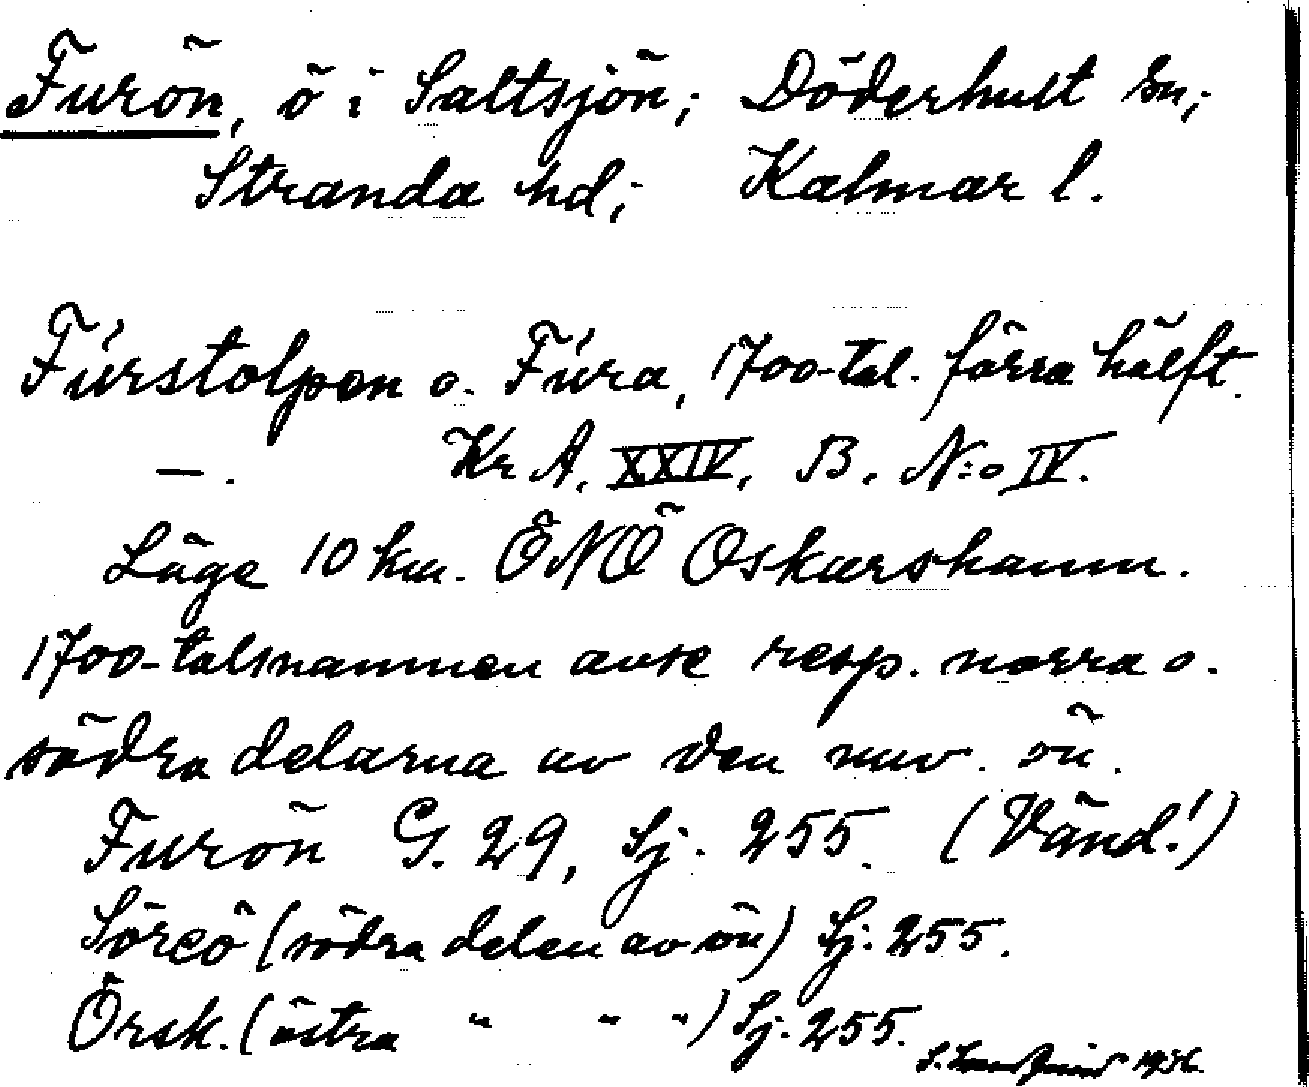 Furön, ö i Saltsjön; Döderhult sn;
Stranda hd; Kalmar l.
Fúrstolpen o. Fúra, 1700-tal. förra hälft.
—. Kr A. XXIV, B. N:o IV.
Läge 10 km. ÖNÖ Oskarshamn.
1700-talsnamnen avse resp. norra o.
södra delarna av den nuv. ön.
Furön G. 29, Sj. 255. (Vänd!)
Söreö (södra delen av ön) Sj. 255.
Örsk. (östra " " ") Sj. 255.
1936.